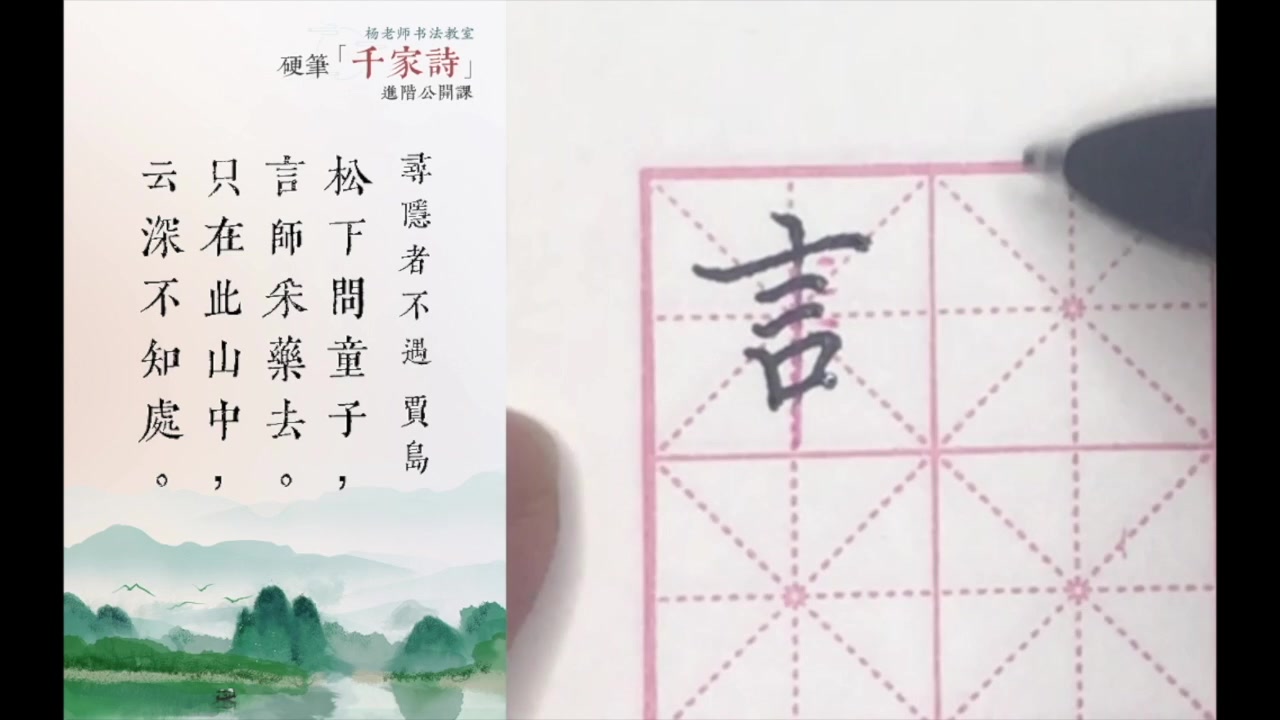 杨老师书法教室
硬筆「千家詩」
進階公開課
尋隱者不遇 賈島
松下問童子，
言師采藥去。
只在此山中，
云深不知處。
言